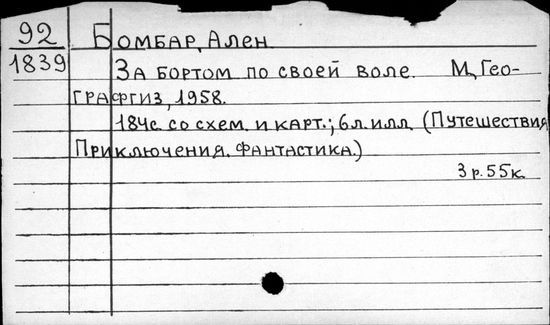 92 Бомбар, Ален
1839 За бортом по своей воле. М., Гео-
графгиз, 1958.
184с. со схем. и карт.; 6л. илл. (Путешествия
Приключения. Фантастика.)
3р. 55к.